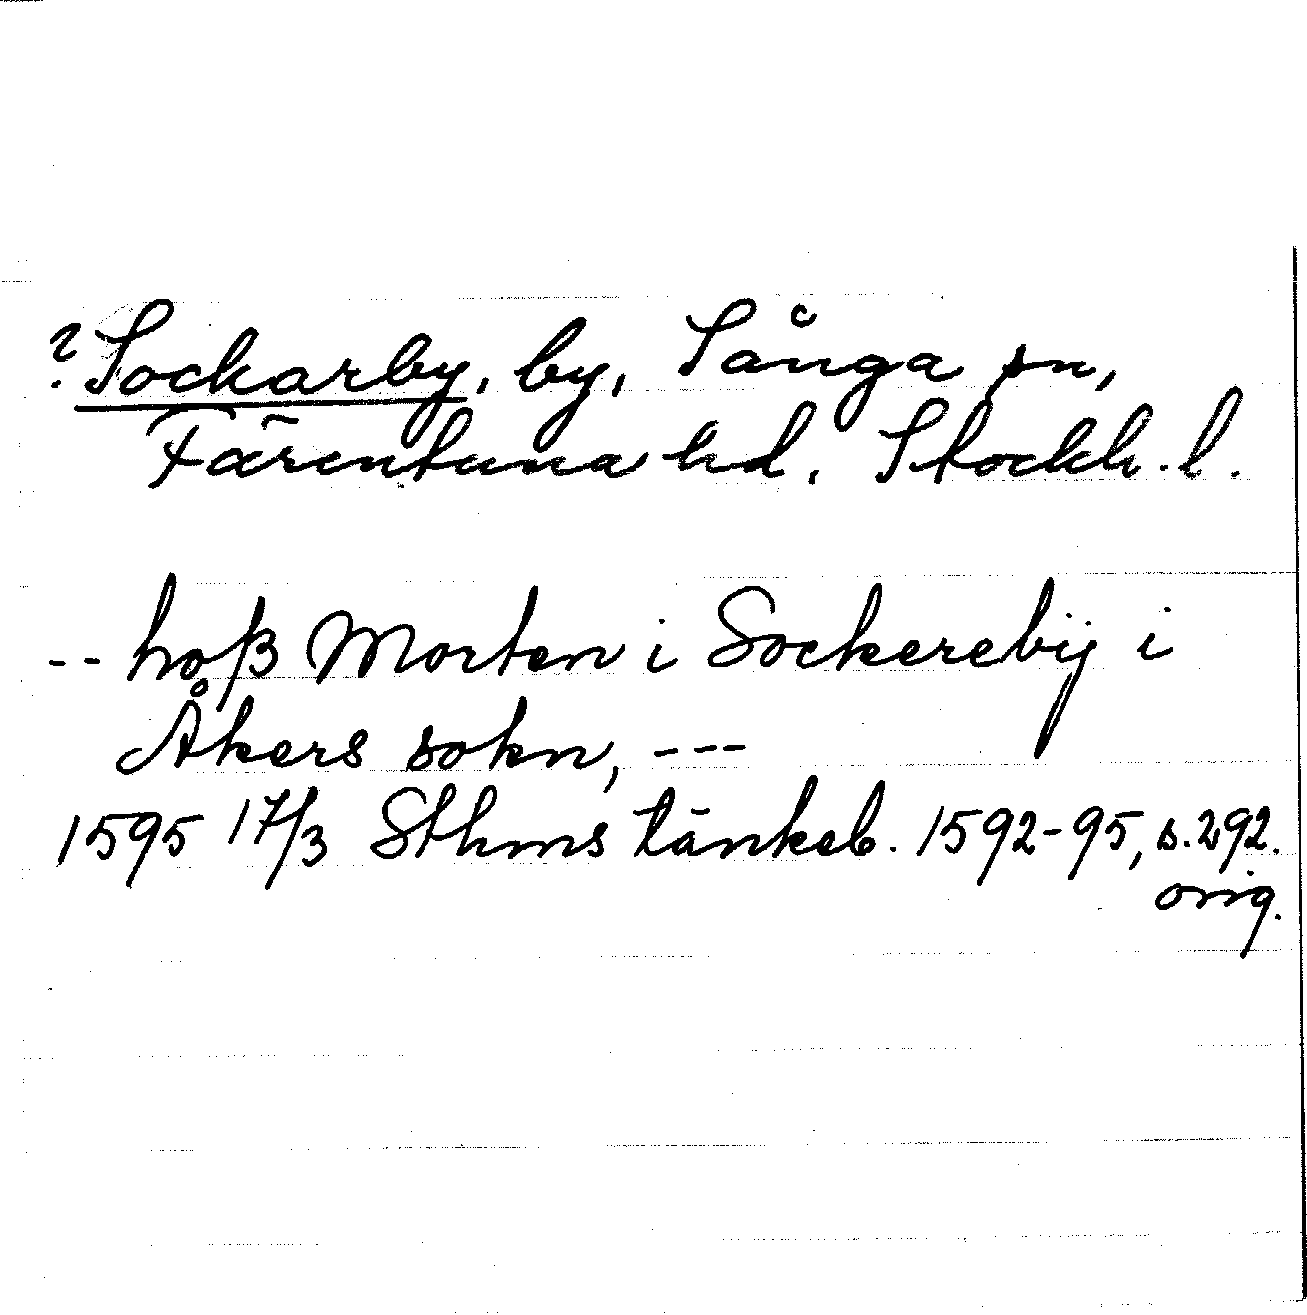 ? Sockarby, by, Sånga sn,
Färentuna hd, Stockh. l.
-- hoß Morten i Sockerebÿ i
Åkers sokn, ---
1595 17/3 Sthms tänkeb. 1592-95, s. 292.
orig.